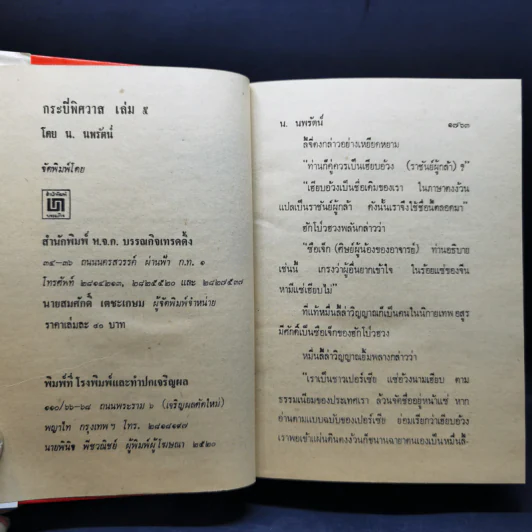 กระบี่พิศวาส เล่ม ๕
โดย น. นพรัตน์
จัดพิมพ์โดย
สำนักพิมพ์
บรรณกิจ
สำนักพิมพ์ ห.จ.ก. บรรณกิจเทรดดิ้ง
๓๔-๓๖ ถนนนครสวรรค์ ผ่านฟ้า ก.ท. ๑
โทรศัพท์ ๒๘๑๔๒๑๓, ๒๘๒๕๕๒๐ และ ๒๘๒๗๕๓๗
นายสมศักดิ์ เตชะเกษม ผู้จัดพิมพ์จำหน่าย
ราคาเล่มละ ๔๐ บาท
พิมพ์ที่โรงพิมพ์และทำปกเจริญผล
๑๑๐/๖๖-๖๘ ถนนพระราม ๖ (เจริญผลตัดใหม่)
พญาไท กรุงเทพฯ โทร. ๒๘๑๘๑๙๗
นายพินิจ พืชวณิชย์ ผู้พิมพ์ผู้โฆษณา ๒๕๒๐
น. นพรัตน์ ๑๗๖๓
ลี้จี้ตงกล่าวอย่างเหยียดหยาม
"ท่านก็คู่ควรเป็นเฮียบอ้วง (ราชันย์ผู้กล้า) ?
"เฮียบอ้วงเป็นชื่อเดิมของเรา ในภาษาตงง้วน
แปลเป็นราชันย์ผู้กล้า ดังนั้นเราจึงใช้ชื่อนี้ตลอดมา"
ฮักโปวฮวงพลันกล่าวว่า
"ซือเจ็ก (ศิษย์ผู้น้องของอาจารย์) ท่านอธิบาย
เช่นนี้ เกรงว่าผู้อื่นยากเข้าใจ ในร้อยแซ่ของจีน
หามีแซ่เฮียบไม่"
ที่แท้หมื่นลี้ล่าวิญญาณก็เป็นคนในนิกายเทพอสูร
มีศักดิ์เป็นซือเจ็กของฮักโปวฮวง
หมื่นลี้ล่าวิญญาณยิ้มพลางกล่าวว่า
"เราเป็นชาวเปอร์เซีย แซ่อ้วงนามเฮียบ ตาม
ธรรมเนียมของประเทศเรา ล้วนจัดชื่ออยู่หน้าแซ่ หาก
อ่านตามแบบฉบับของเปอร์เซีย ย่อมเรียกว่าเฮียบอ้วง
เราพอเข้าแผ่นดินตงง้วนก็ขนานฉายาตนเองเป็นหมื่นลี้-